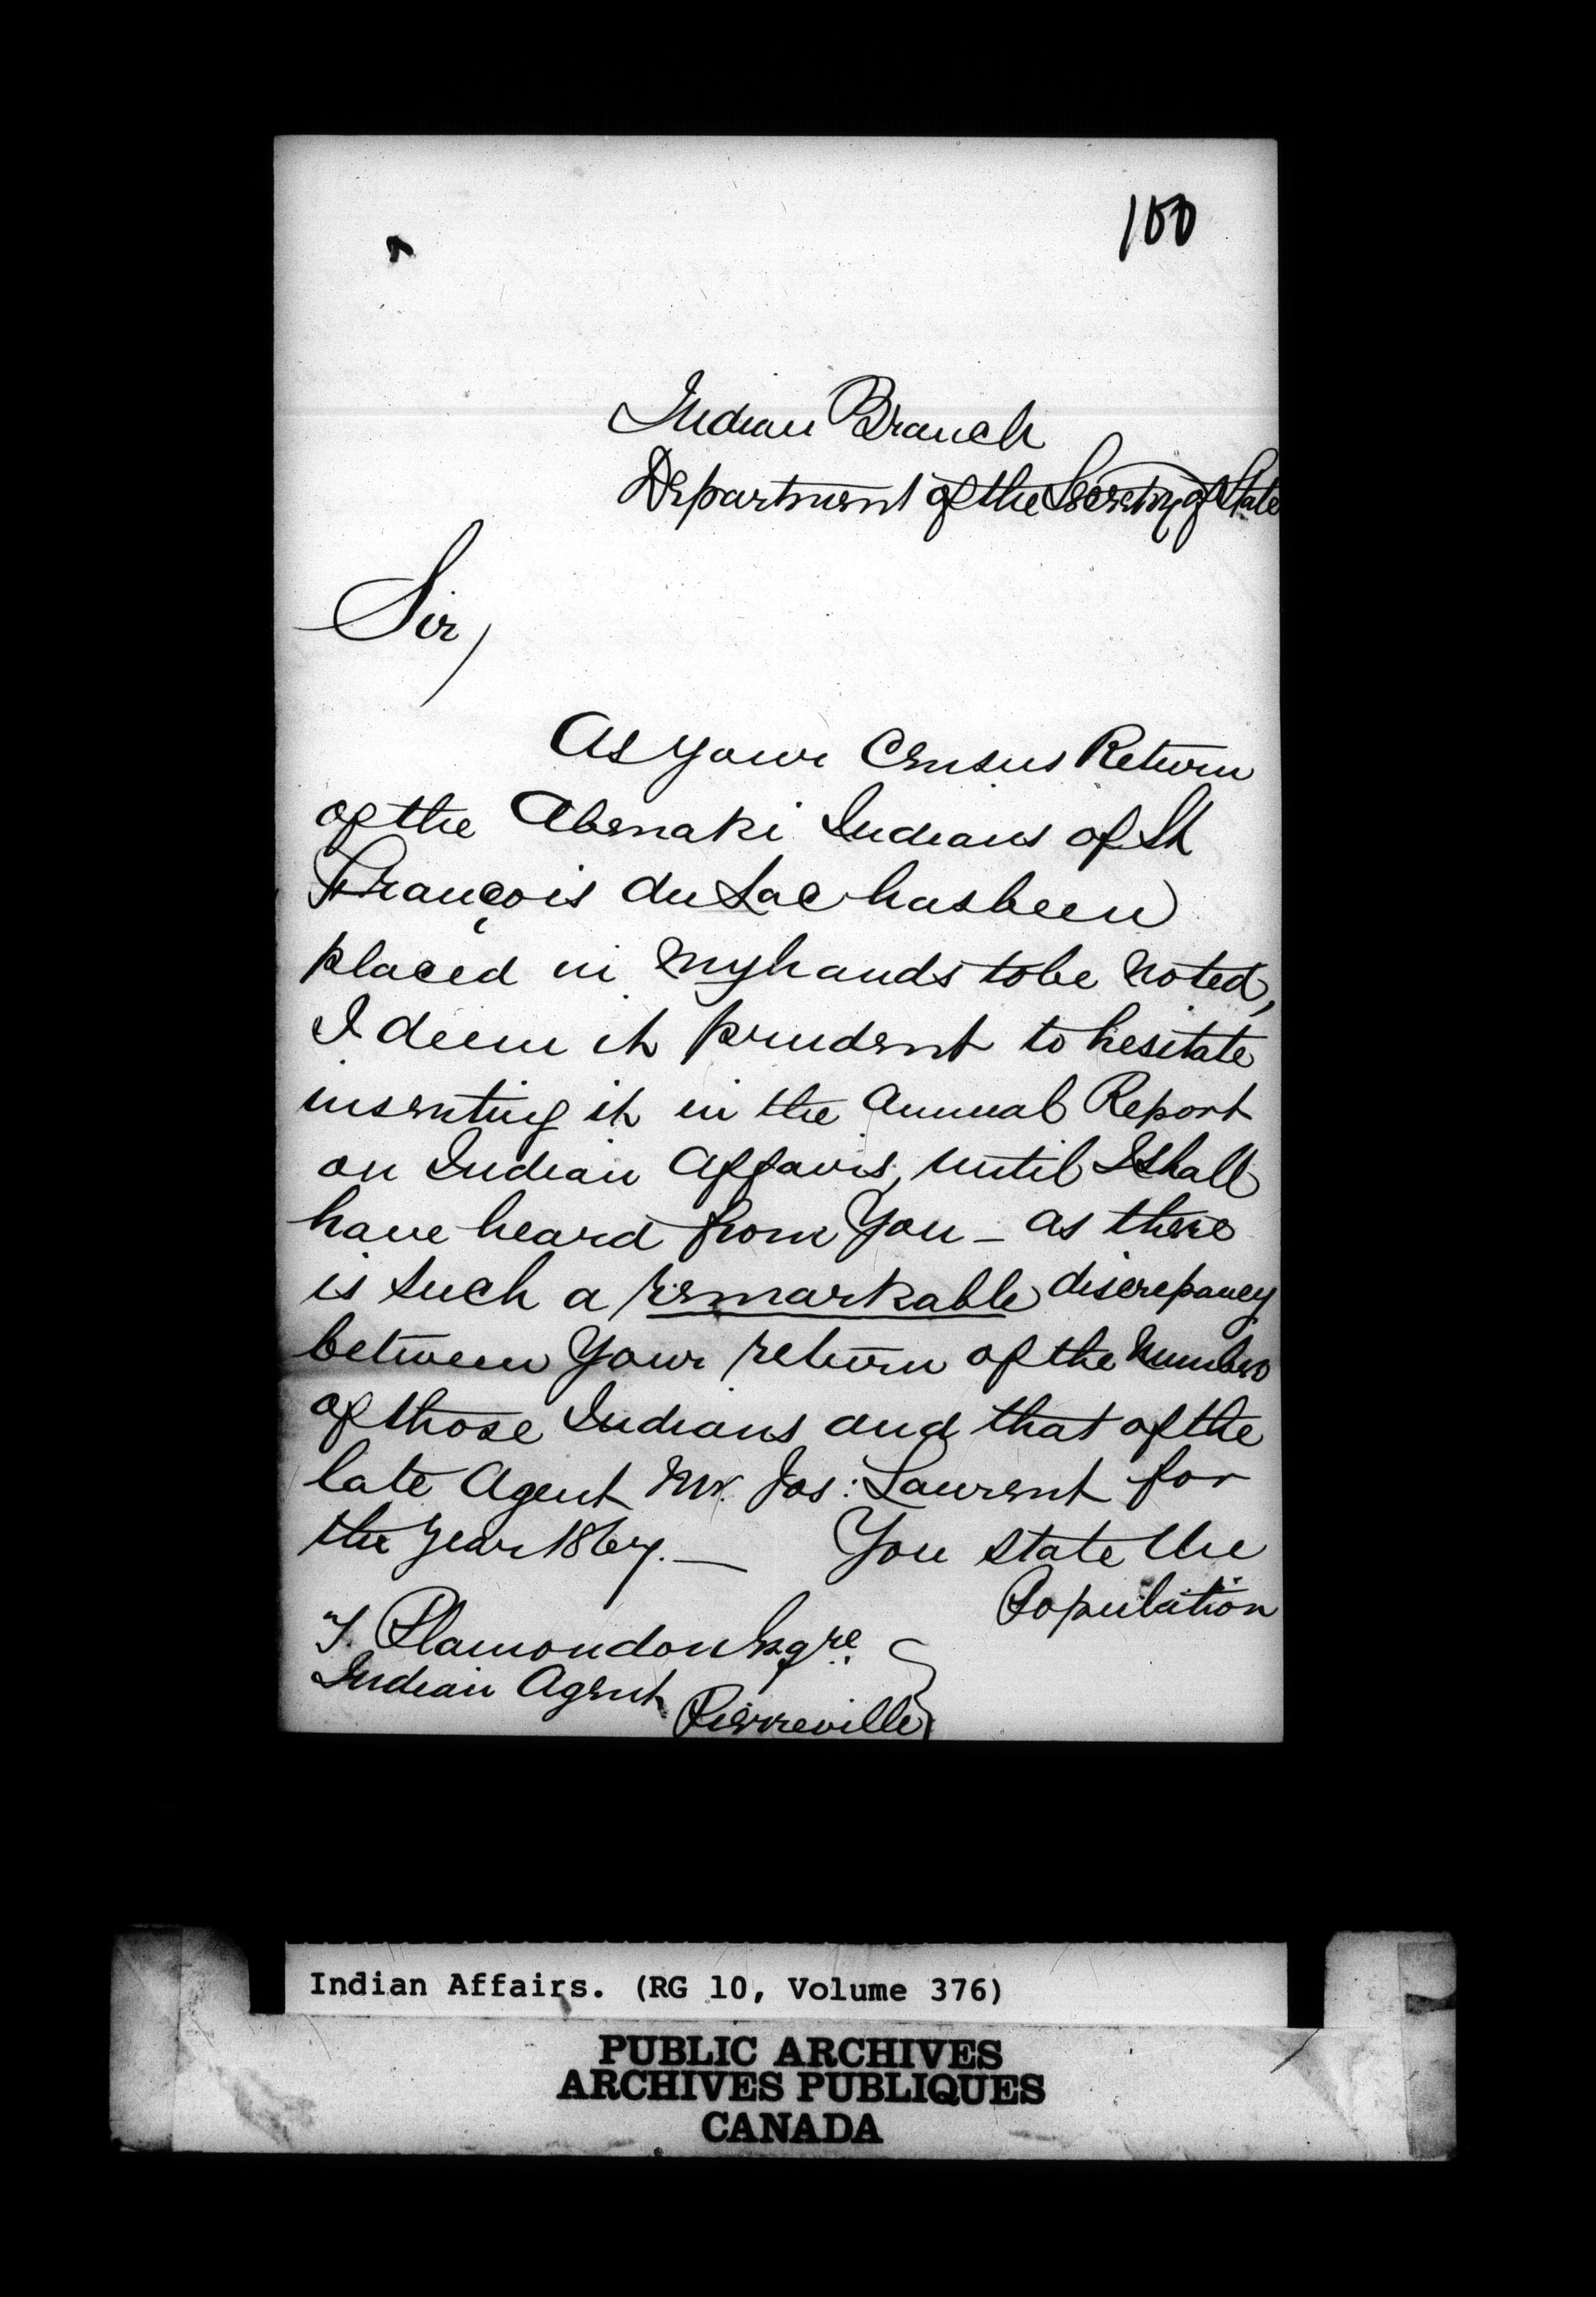 100
Indian Branch
Department of the Secretary of State
Sir,
As your Census Return
of the Abenaki Indians of St
François du Lac has been
placed in my hands to be noted,
I deem it prudent to hesitate
inserting it in the Annual Report
on Indian Affairs, until I shall
have heard from You – as there
is such a remarkable discrepancy
between Your return of the Number
of those Indians and that of the
late Agent Mr. Jos: Laurent for
the year 1867. — You state the
Population
T. Plamondon Esqre.
Indian Agent
Pierreville
Indian Affairs. (RG 10, Volume 376)
PUBLIC ARCHIVES
ARCHIVES PUBLIQUES
CANADA